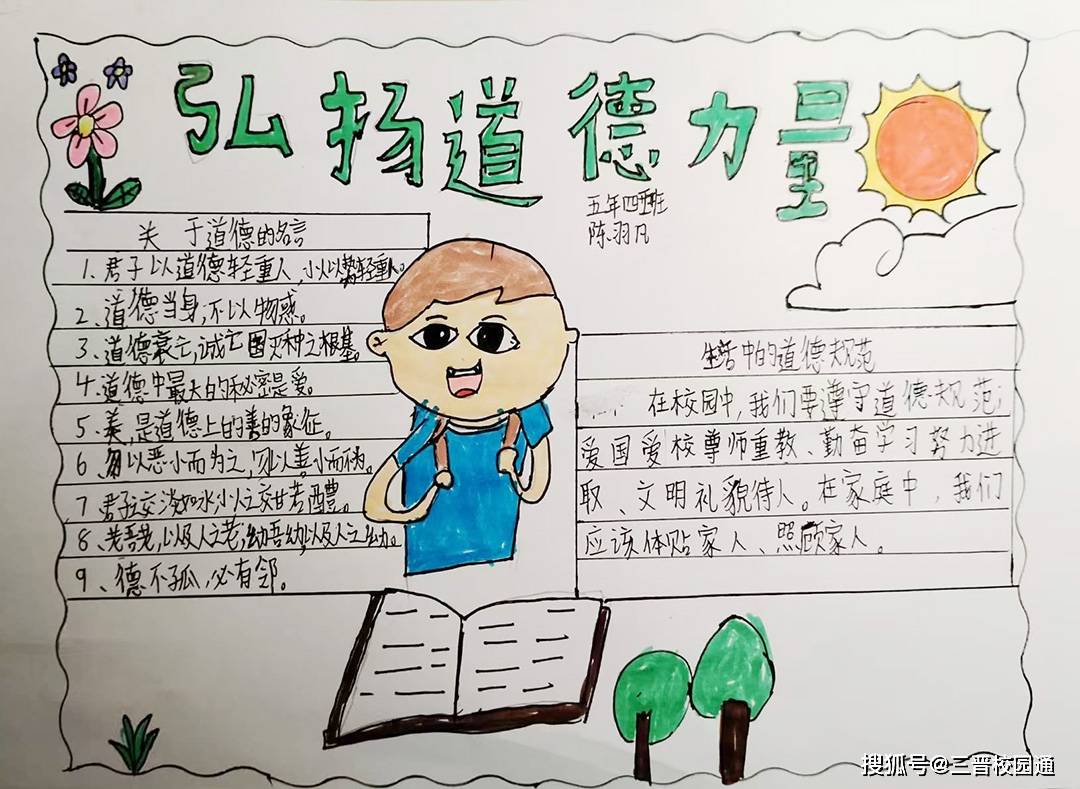 弘扬道德力量
五年四班
陈羽凡
关于道德的名言
1、君子以道德轻重人,小人以势轻重人。
2、道德当身,不以物惑。
3、道德衰亡,诚亡国灭种之根基。
4、道德中最大的秘密是爱。
5、美,是道德上的善的象征。
6、勿以恶小而为之,勿以善小而不为。
7君子之交淡如水小人之交甘若醴。
8、老吾老,以及人之老;幼吾幼,以及人之幼。
9、德不孤,必有邻。
生活中的道德规范
在校园中,我们要遵守道德规范;
爱国爱校尊师重教、勤奋学习努力进
取、文明礼貌待人。在家庭中,我们
应该体贴家人、照顾家人。
搜狐号@三晋校园通